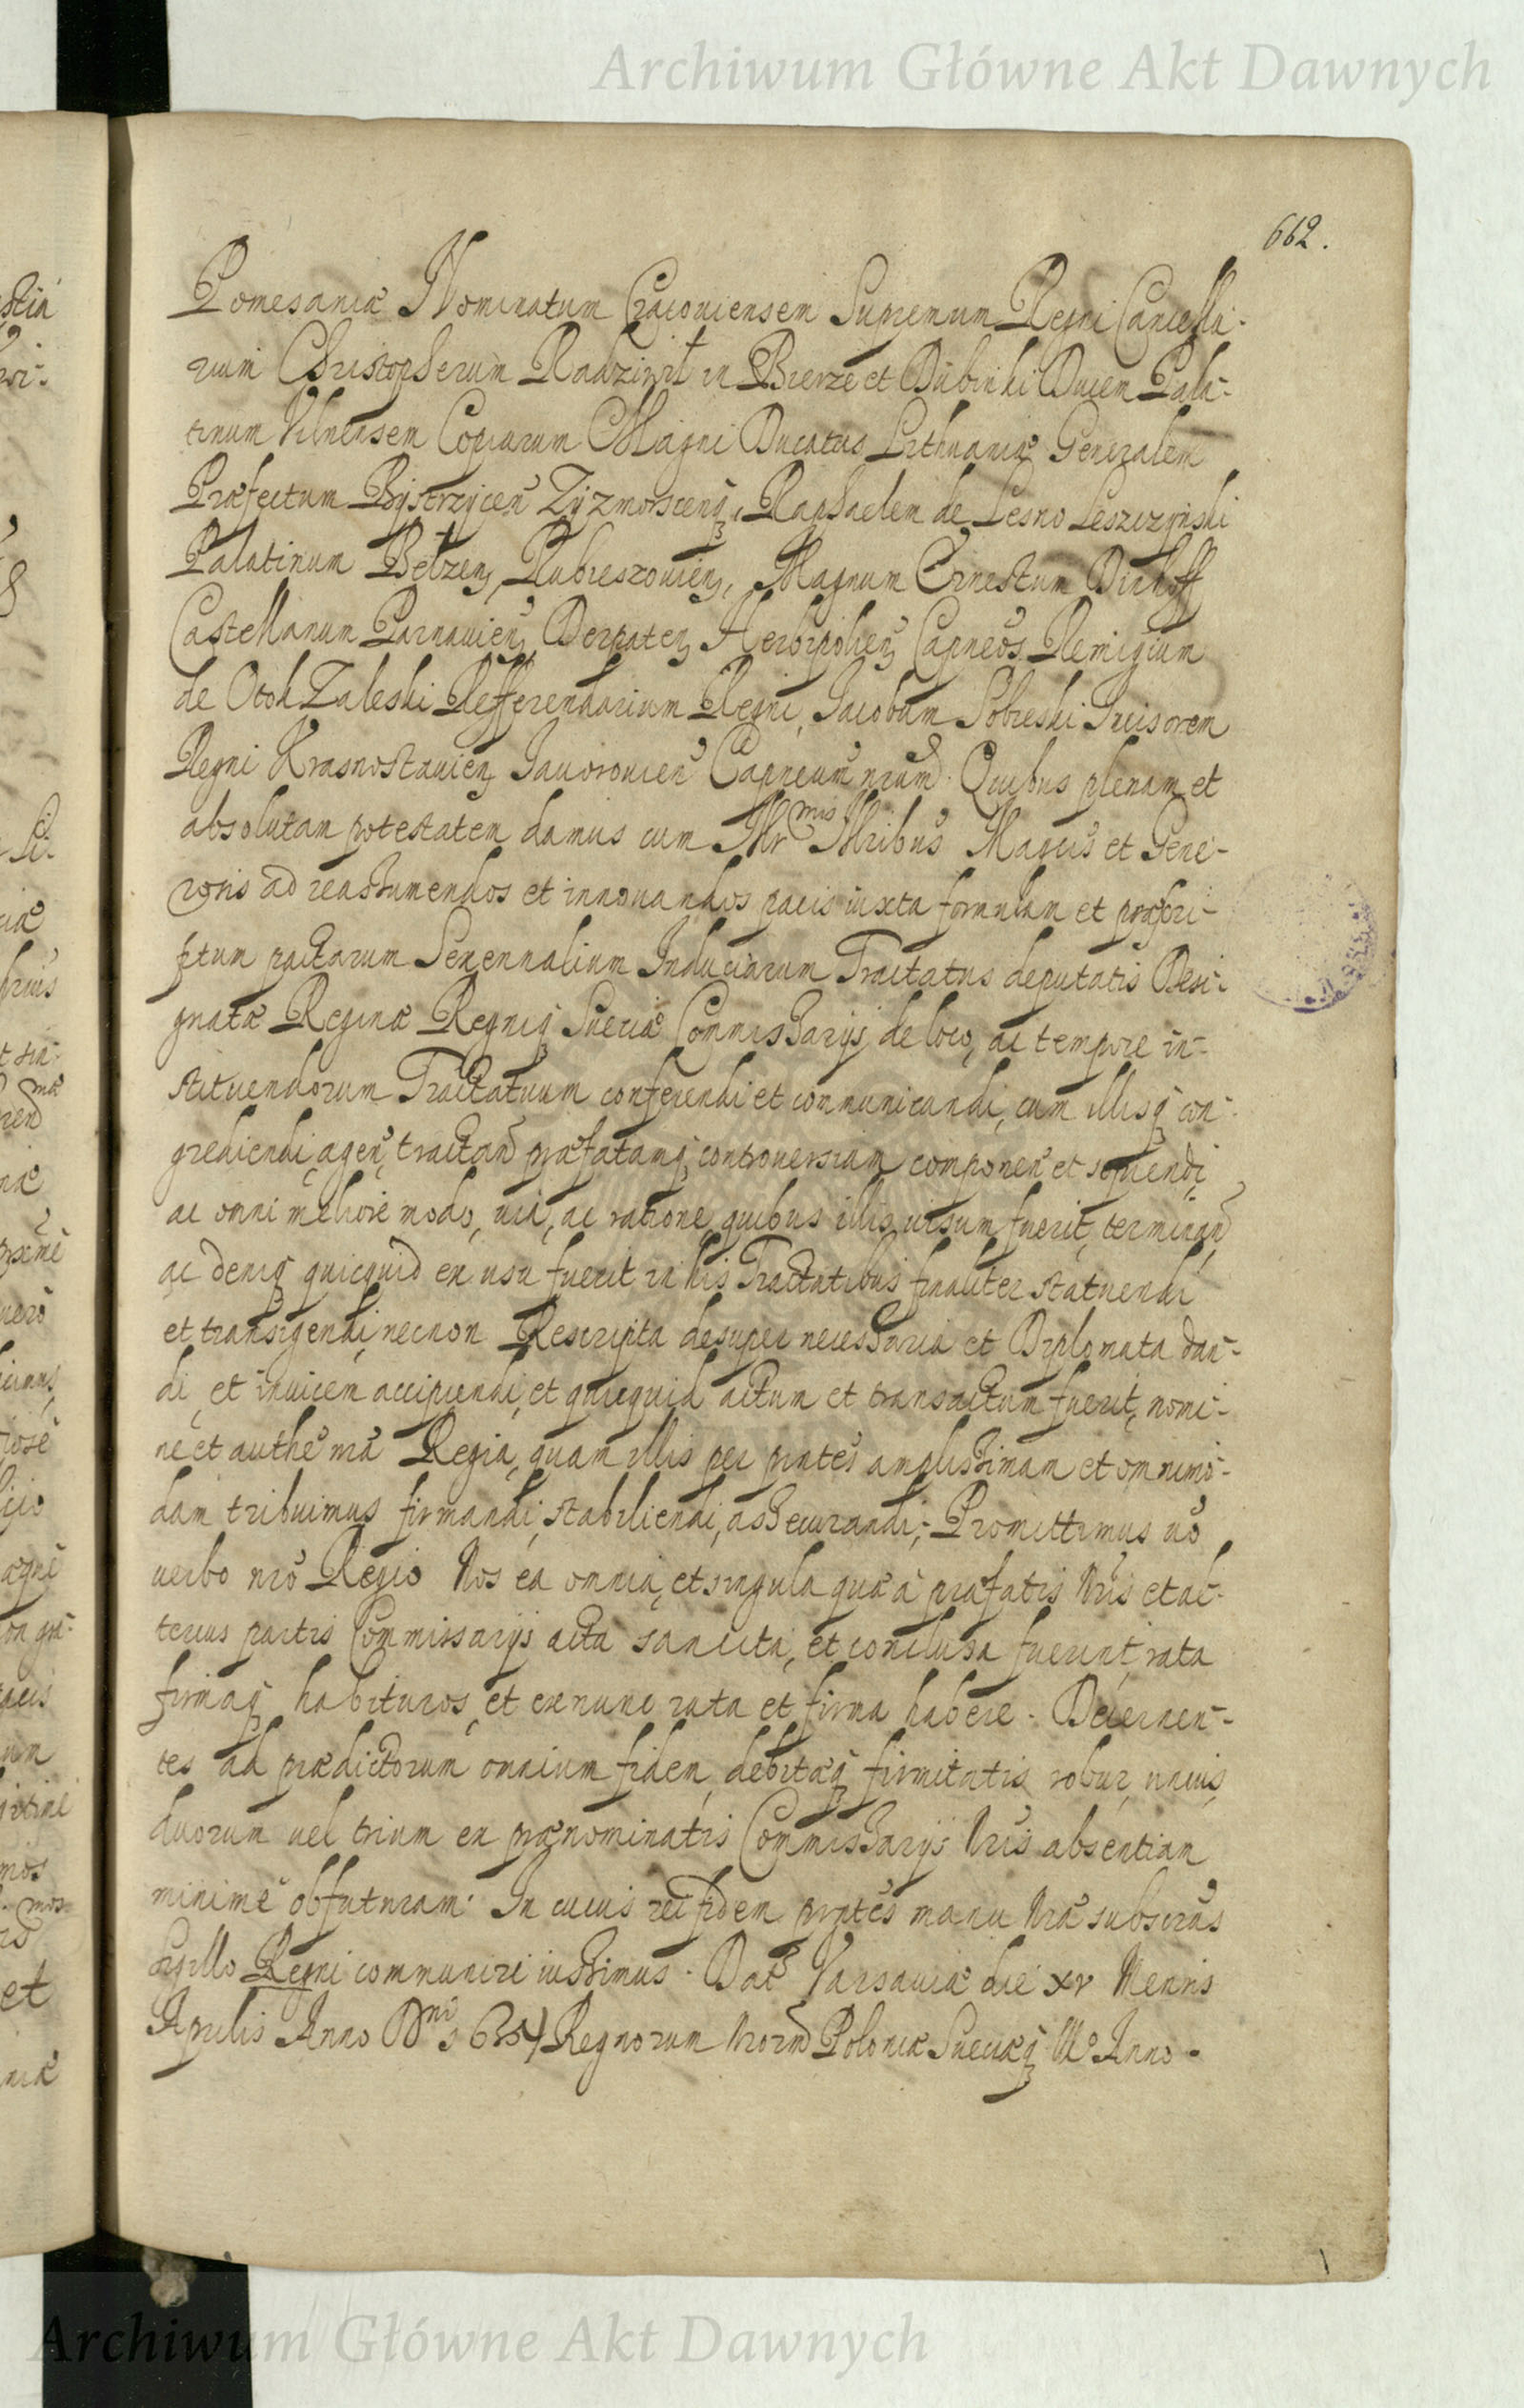 Archiwum Główne Akt Dawnych
662.
Pomesaniæ Nominatum Cracouiensem Supremum Regni Cancella-
rium Christopherum Radziwił in Bierze et Dubinki Ducem Pala-
tinum Vilnensem Copiarum Magni Ducatus Lithuaniæ Generalem
Præfectum Bystrzycen Zyzmorsceñq, Raphaelem de Lesno Leszczynski
Palatinum Bełzen, Rubieszouien, Magnum Ernestum Dinhoff
Castellanum Parnauien Derpaten Capneos Remigium
de Otok Zaleski Refferendarium Regni, Jacobum Sobieski Incisorem
Regni Krasnostauien Jauorouien Capneum nrum. Quibus plenam et
absolutam potestatem damus cum Illr mis Illribus Magcis et Gene-
rosis ad reassumendos et innouandos pacis iuxta formulam et præscri-
ptum pactarum Sexennalium Induciarum Tractatus deputatis Desi-
gnatæ Reginæ Regniq Sueciæ Commissarijs de loco, ac tempore in-
stituendorum Tractatuum conferendi et communicandi, cum illisq con-
grediendi, agen, tractand præfatamq controuersiam componen et sopiendi
ac omni meliore modo, uia, ac ratione, quibus illis uisum fuerit, terminand
ac deniq quicquid ex usu fuerit in his Tractatibus finaliter statuendi
et transigendi, necnon Rescripta desuper necessaria et Diplomata dan-
di, et inuicem accipiendi, et quicquid actum et transactum fuerit, nomi-
ne et authe nra Regia, quam illis per pntes amplissimam et omnimo-
dam tribuimus firmandi, stabiliendi, assecurandi; Promittimus uo
uerbo nro Regio Nos ea omnia, et singula quæ a præfatis Nris et al-
terius partis Commissarijs acta sancita, et conclusa fuerint, rata
firmaq habituros, et ex nunc rata et firma habere. Decernen-
tes ad prædictorum omnium fidem, debitæq firmitatis robur, unius,
duorum uel trium ex prænominatis Commissarijs Nris absentiam
minime obfuturam. In cuius rei fidem pntes manu Nra subscras
Sigillo Regni communiri iussimus. Dat Varsauiæ die xv Mensis
Aprilis Anno Dni 1635 Regnorum nrorum Poloniæ Sueciæq Anno.
Archiwum Główne Akt Dawnych